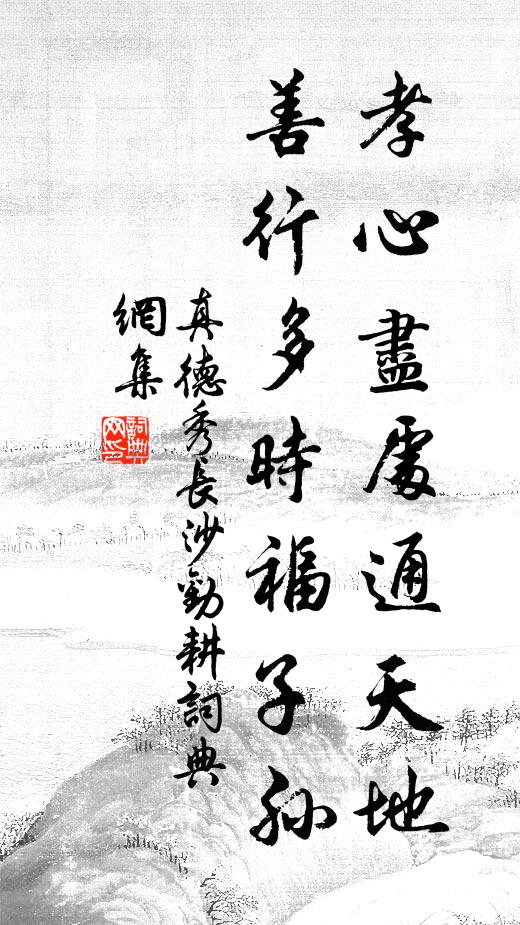 孝心盡處通天地
善行多時福子孫
真德秀長沙勸耕詞典
網集
詞典網印